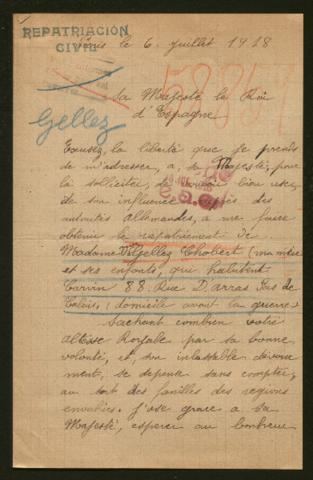 REPATRIACIÓN
CIVIL
Paris le 6 juillet 1918
Gellez
Sa Majesté le Roi
d'Espagne
Excusez, la liberté que je prends
de m'adresser, a, sa Majesté, pour
la solliciter, de vouloir bien user
de son influence auprès des
autorités allemandes, a me faire
obtenir le repatriement de
Madame Gellez Chobert (ma mère
et ses enfants, qui habitent
Carvin 88 Rue D'arras Pas de
Calais, (domicile avant la guerre)
Sachant combien votre
altesse Royale par sa bonne
volonté, et, son inlassable dévoue
ment, se depense sans compter,
au sort des familles des regions
envahies. j'ose grace a sa
Majesté, esperer au bonheur